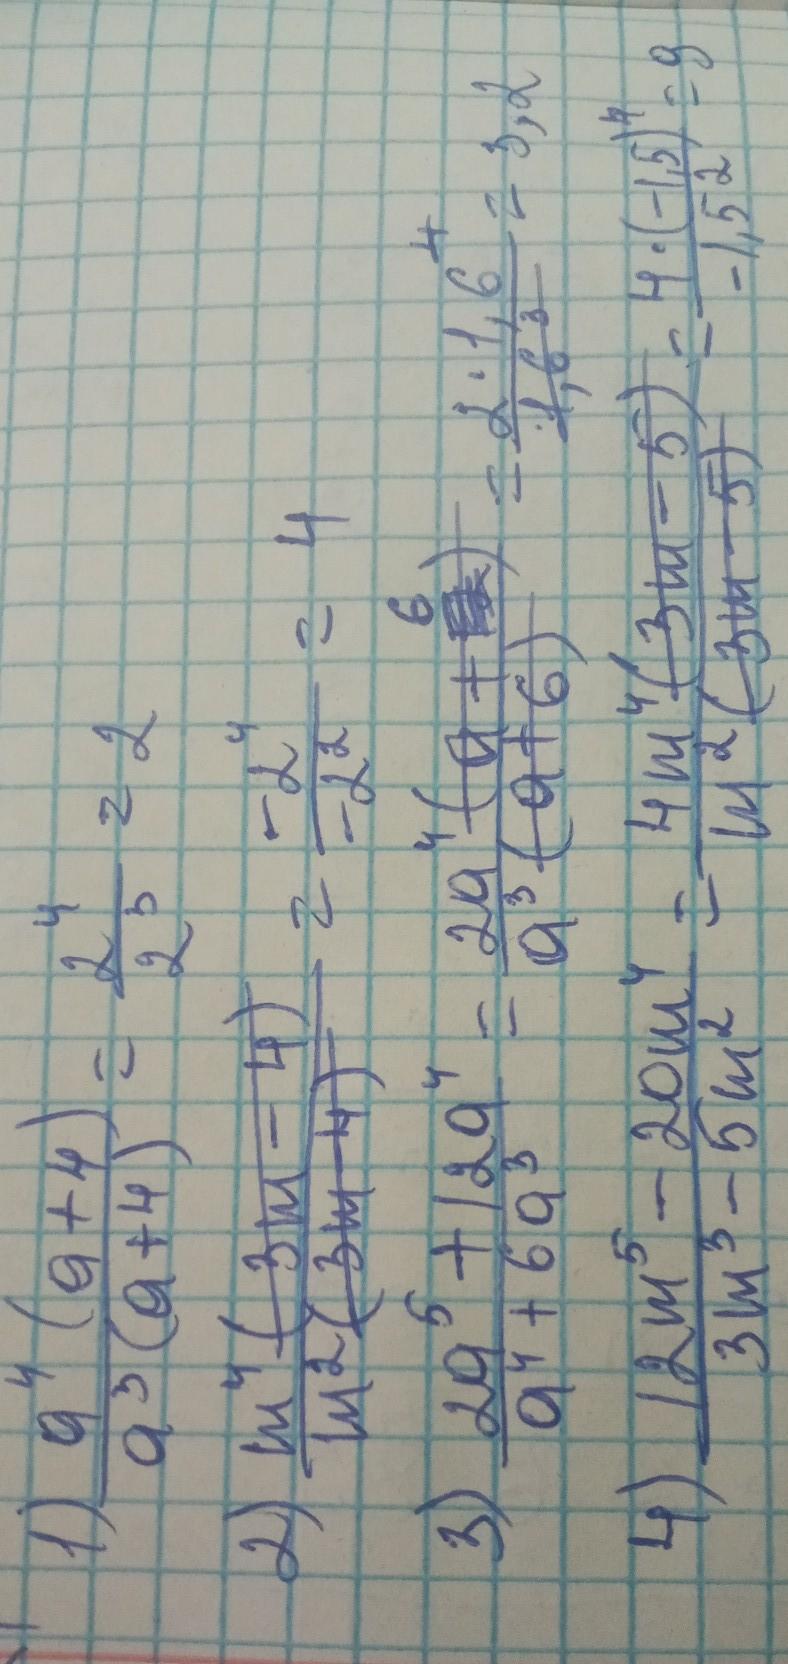 1) a⁴(a+4)/a³(a+4) = 2⁴/2³ = 2
2) m⁴(3m-4)/m²(3m-4) = -2⁴/-2² = 4
3) 2a⁵+12a⁴/a⁴+6a³ = 2a⁴(a+6)/a³(a+6) = 2·1,6⁴/1,6³ = 3,2
4) 12m⁵-20m⁴/3m³-5m² = 4m⁴(3m-5)/m²(3m-5) = 4·(-1,5)⁴/-1,5² = 9